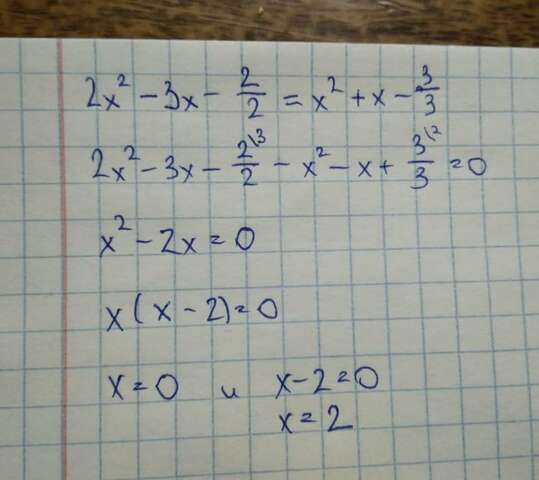 2x² - 3x - 2/2 = x² + x - 3/3
2x² - 3x - 2\3/2 - x² - x + 3\2/3 = 0
x² - 2x = 0
x(x - 2) = 0
x = 0 и x - 2 = 0
x = 2